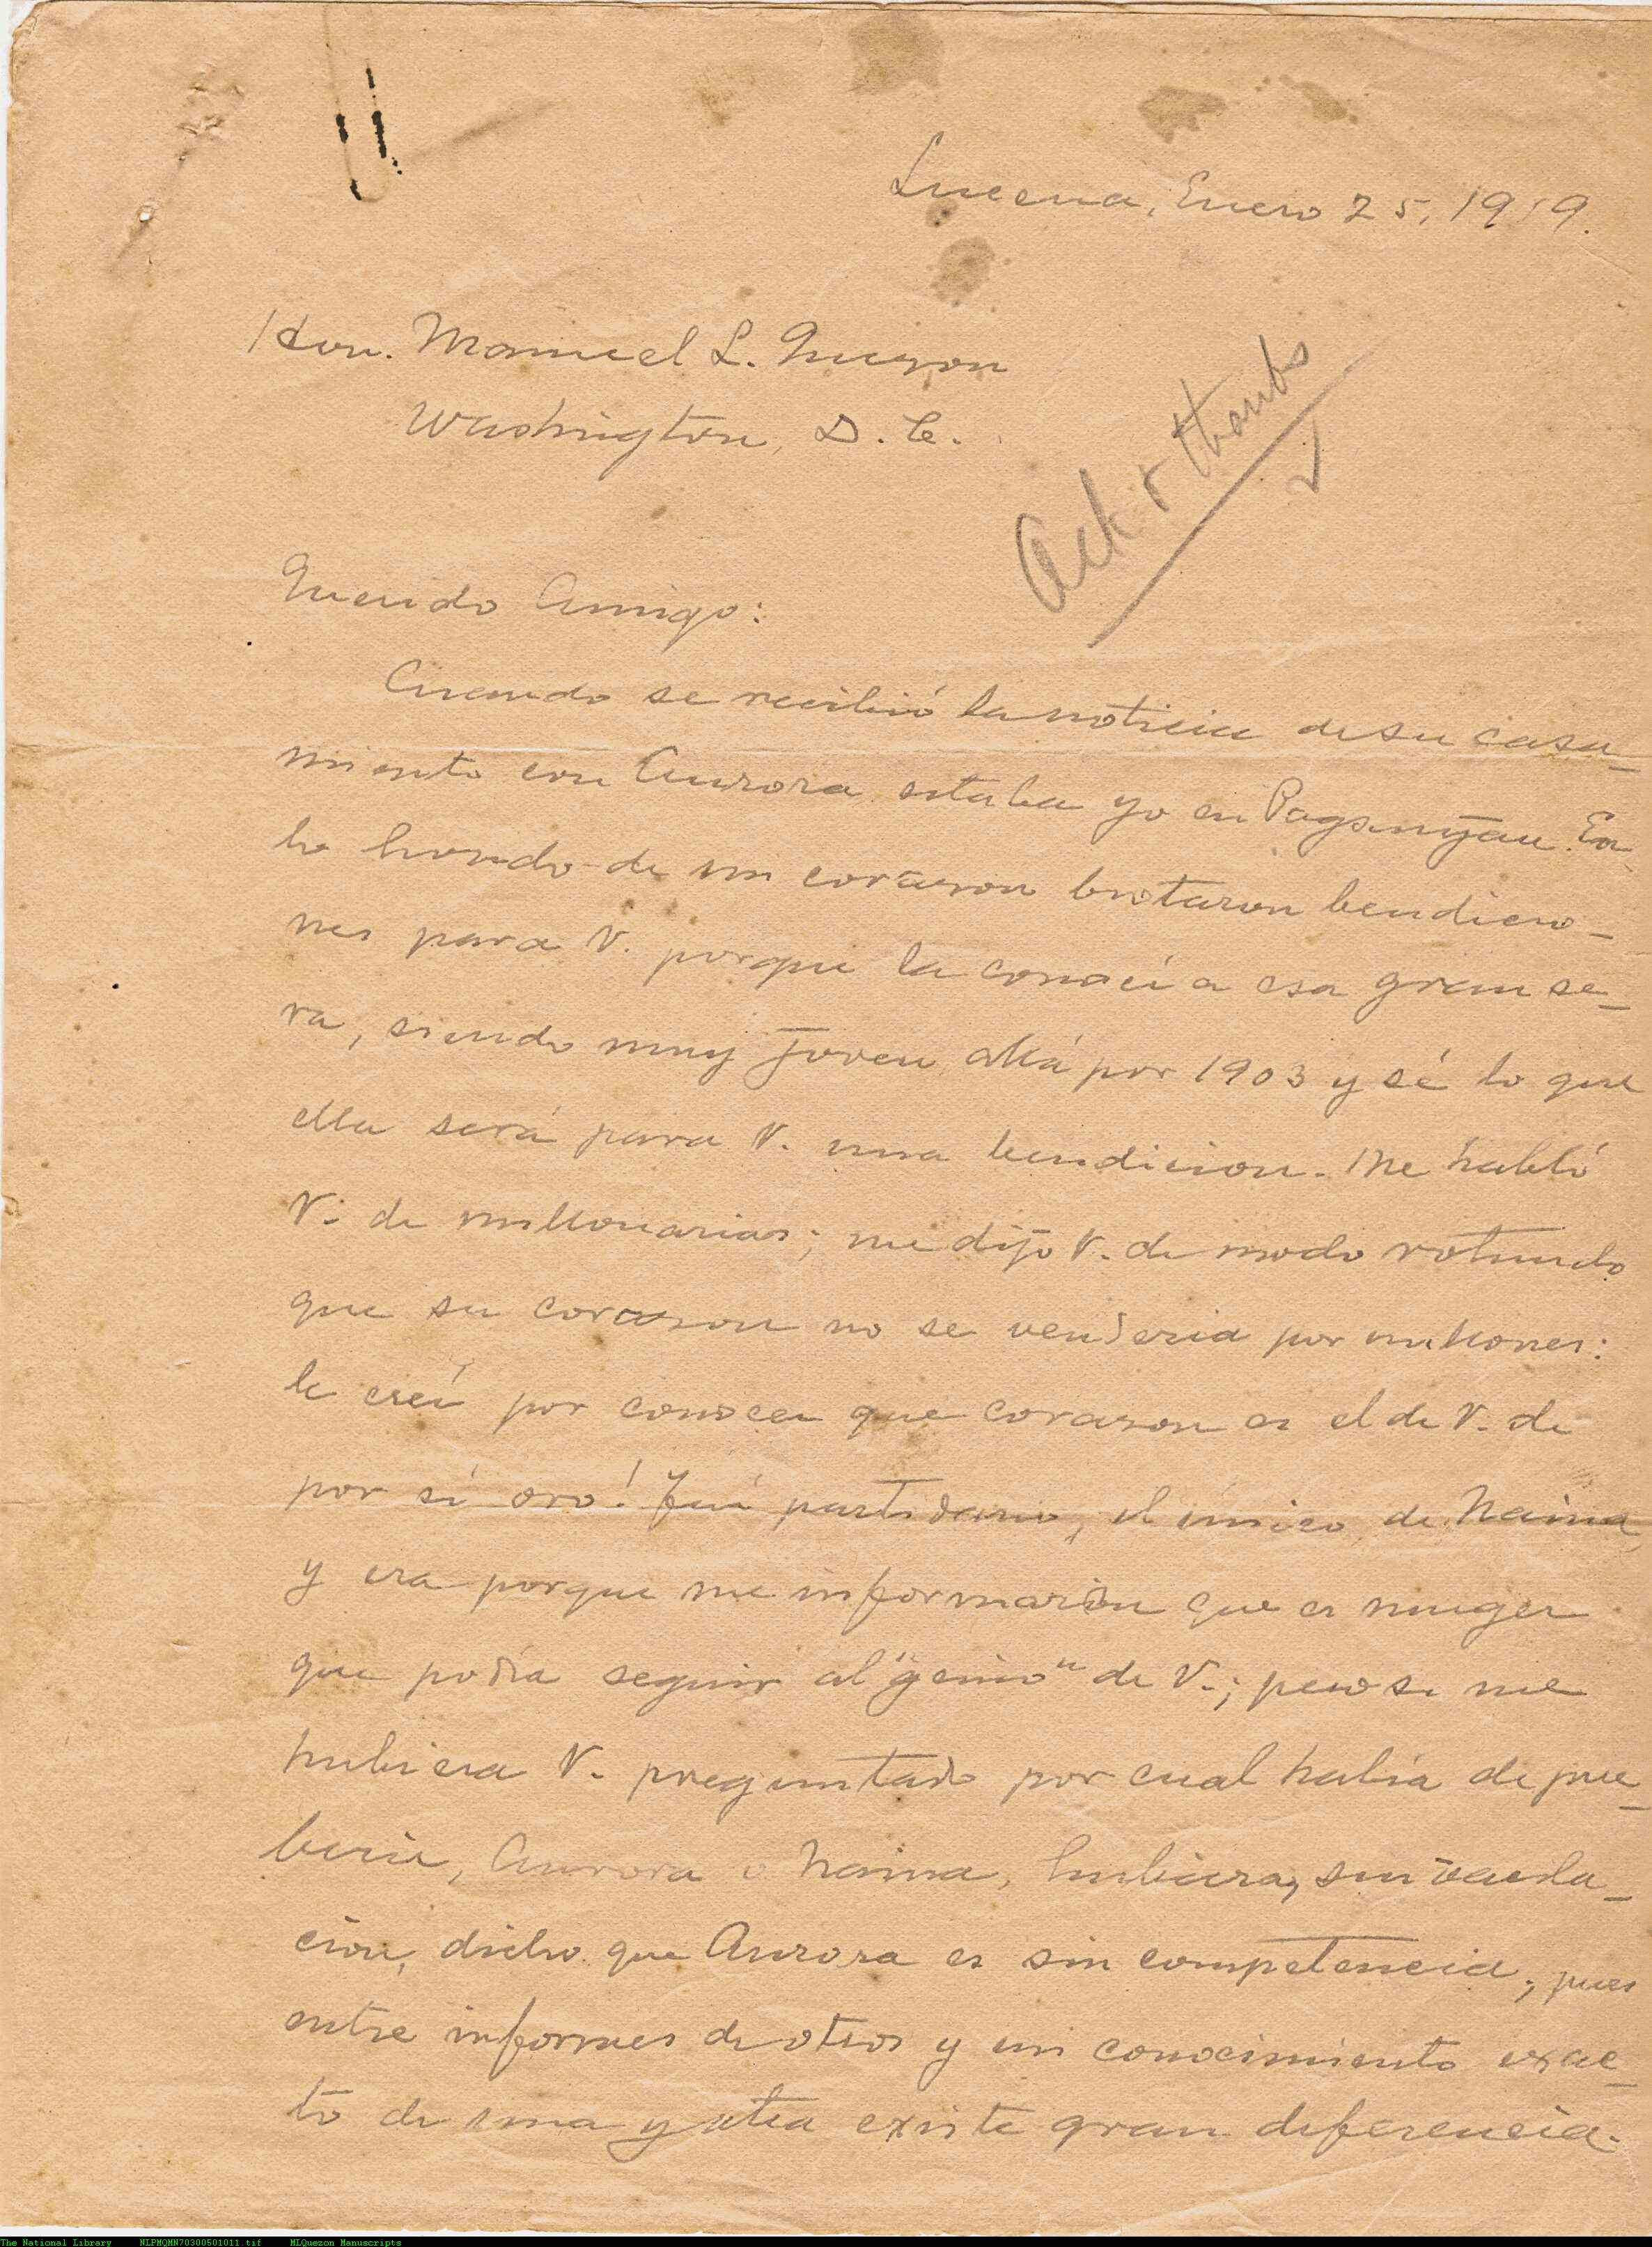 Lucena, Enero 25, 1919.
Hon. Manuel L. Quezon
Washington, D. C.
Ack & thanks
Querido Amigo:
Cuando se recibió la noticia de su casa-
miento con Aurora estaba yo en Pagsanjan. En
lo hondo de mi corazon brotaron bendicio-
nes para V. porque la conocí a esa gran se-
ra, siendo muy joven allá por 1903 y sé lo que
ella será para V. una bendicion. Me habló
V. de millonarias; me dijo V. de modo rotundo
que su corazon no se venderia por millones:
le creí por conocer que corazon es el de V. de
por sí oro! Fuí partidario, el único de Naima,
y era porque me informaron que es muger
que podía seguir al "genio" de V.; pero si me
hubiera V. preguntado por cual habia de pre-
beria, Aurora o Naima, hubiera, sin vacila-
cion, dicho que Aurora es sin competencia; pues
entre informes de otros y mi conocimiento exac-
to de una y otra existe gran diferencia.
The National Library NLPMQMN70300501011.tif MLQuezon Manuscripts